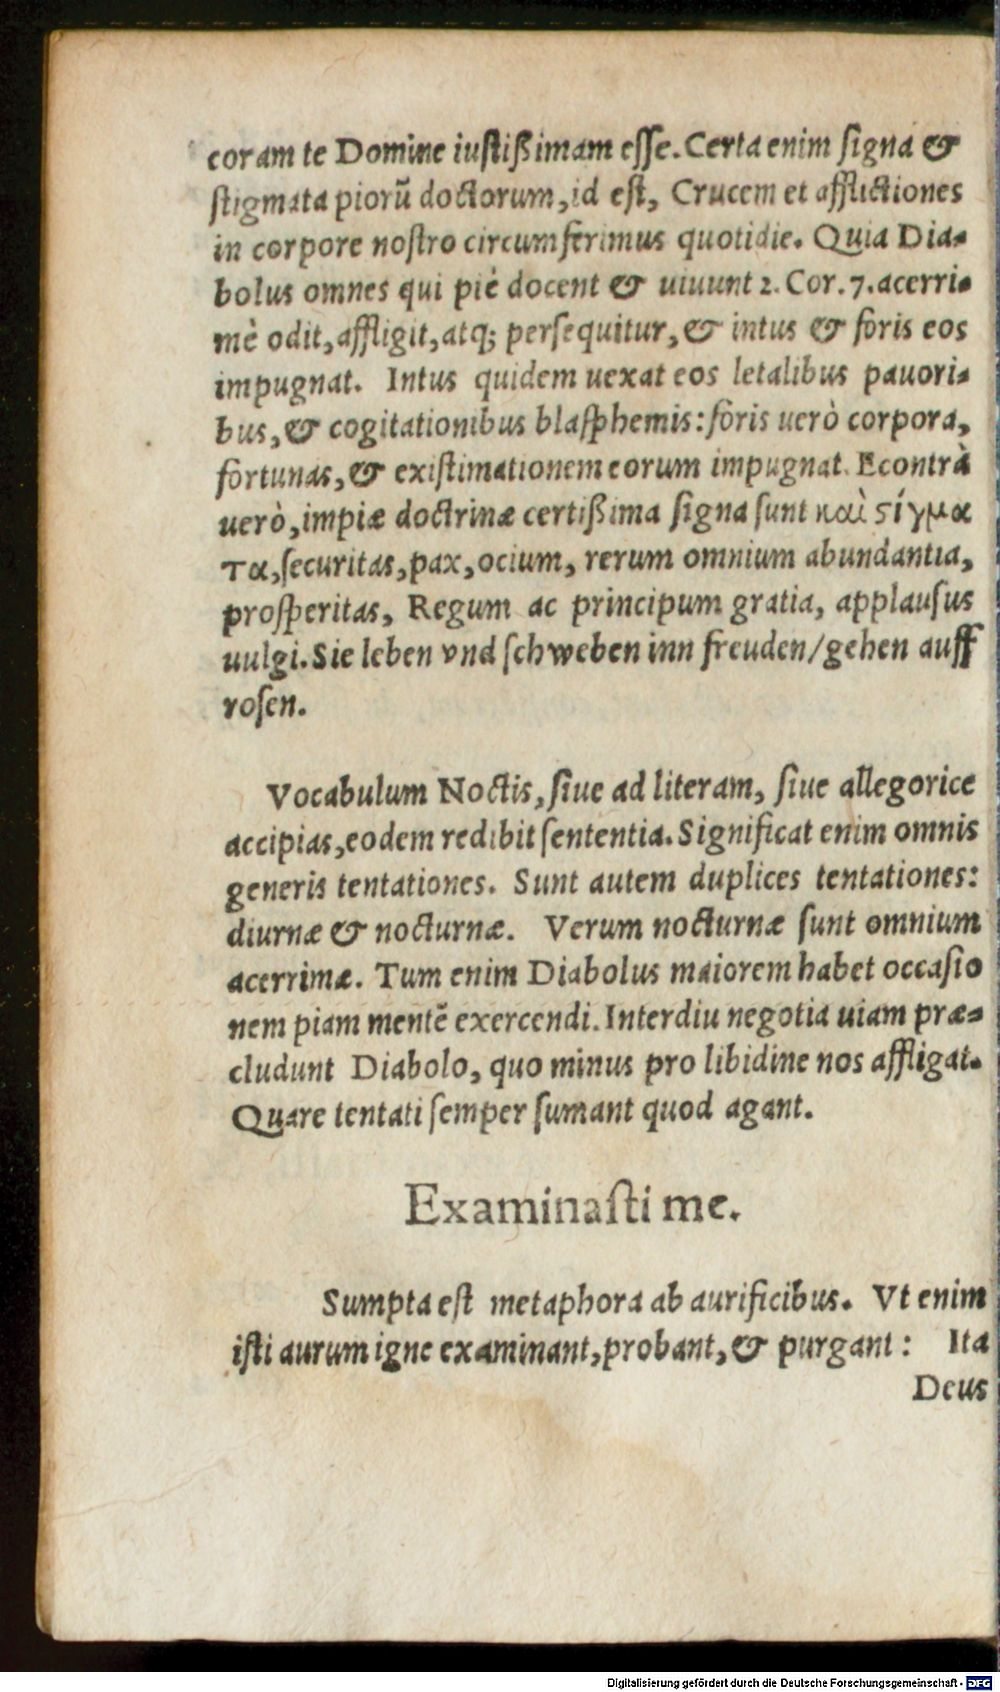 coram te Domine iustißimam esse. Certa enim signa &
stigmata piorū doctorum, id est, Crucem et afflictiones
in corpore nostro circumferimus quotidie. Quia Dia-
bolus omnes qui piè docent & uiuunt 2. Cor. 7. acerri-
mè odit, affligit, atq; persequitur, & intus & foris eos
impugnat. Intus quidem uexat eos letalibus pauori-
bus, & cogitationibus blasphemis: foris uerò corpora,
fortunas, & existimationem eorum impugnat. Econtrà
uerò, impiæ doctrinæ certißima signa sunt καὶ ϛίγμα
τα, securitas, pax, ocium, rerum omnium abundantia,
prosperitas, Regum ac principum gratia, applausus
uulgi. Sie leben vnd schweben inn freuden/gehen auff
rosen.
Vocabulum Noctis, siue ad literam, siue allegorice
accipias, eodem redibit sententia. Significat enim omnis
generis tentationes. Sunt autem duplices tentationes:
diurnæ & nocturnæ. Verum nocturnæ sunt omnium
acerrimæ. Tum enim Diabolus maiorem habet occasio
nem piam mentē exercendi. Interdiu negotia uiam præ-
cludunt Diabolo, quo minus pro libidine nos affligat.
Quare tentati semper sumant quod agant.
Examinasti me.
Sumpta est metaphora ab aurificibus. Vt enim
isti aurum igne examinant, probant, & purgant: Ita
Deus
Digitalisierung gefördert durch die Deutsche Forschungsgemeinschaft - DFG